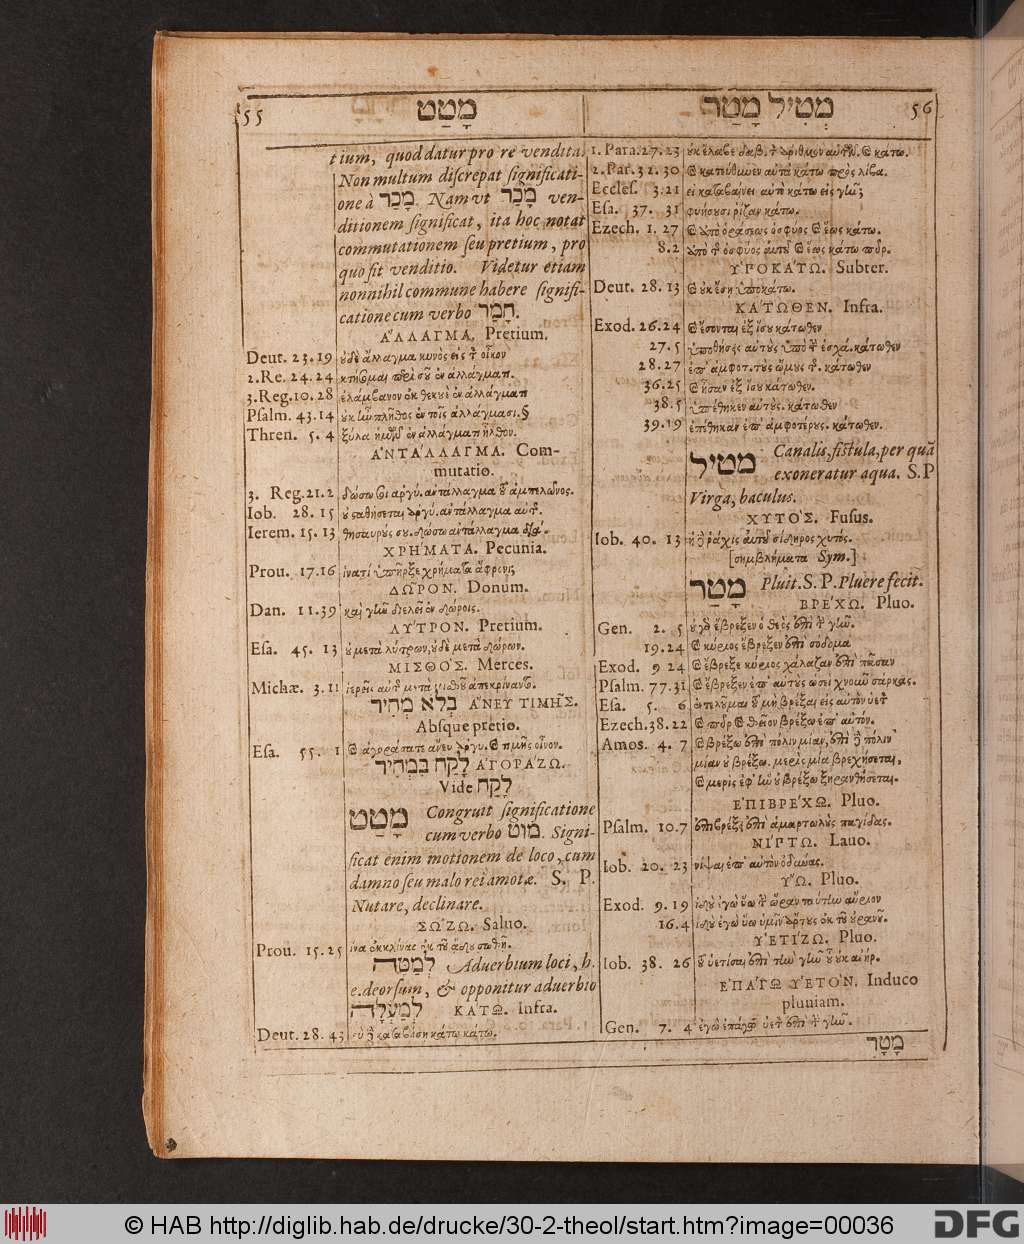 55 מָטַט
tium, quod datur pro re vendita.
Non multum discrepat significati-
one à מָכַר. Nam vt מָכַר ven-
ditionem significat, ita hoc notat
commutationem seu pretium, pro
quo fit venditio. Videtur etiam
nonnihil commune habere signifi-
catione cum verbo חָמַר.
ἌΛΛΑΓΜΑ. Pretium.
Deut. 23.19 οὐδὲ ἄλλαγμα κυνὸς εἰς τ οἶκον
2.Re. 24.24
3.Reg.10.28 ἐλάμβανον ἐκ θεκουὲ ἐν ἀλλάγματι
Psalm. 43.14 οὐκ ἦν πλῆθος ἐν τοῖς ἀλλάγμασι.§
Thren. 5.4 ξύλα ἡμῶν ἐν ἀλλάγματι ἦλθον.
ἈΝΤΆΛΛΑΓΜΑ. Com-
mutatio.
3. Reg.21.2 δώσω σοι ἀργύ. ἀντάλλαγμα ἀμπελῶνος.
Iob. 28.15 οὐ σταθήσεται ἀργύ. ἀντάλλαγμα αὐτ.
Ierem. 15.13 θησαυρούς σου. δώσω ἀντάλλαγμα
ΧΡΉΜΑΤΑ. Pecunia.
Prou. 17.16 ἱνατί ὑπῆρξε χρήματα ἄφρονι;
ΔΩ͂ΡΟΝ. Donum.
Dan. 11.39 καὶ γῆν διελεῖ ἐν δώροις.
ΛΎΤΡΟΝ. Pretium.
Esa. 45.13 οὐ μετὰ λύτρων, οὐδὲ μετὰ δώρων.
ΜΙΣΘΌΣ. Merces.
Michæ. 3.11 ἱερεῖς αὐτ μετὰ μισθοῦ ἀπεκρίναντο.
בְלֹא מְחִיר ἌΝΕΥ ΤΙΜΗ͂Σ.
Absque pretio.
Esa. 55. 1 ἀγοράσατε ἄνευ ἀργυ. τιμῆς οἶνον.
לָקַח בִּמְחִיר ἈΓΟΡΆΖΩ.
Vide לָקַח
מָטַט Congruit significatione
cum verbo מוֹט. Signi-
ficat enim motionem de loco, cum
damno seu malo rei amotæ. S. P.
Nutare, declinare.
ΣΏΖΩ. Saluo.
Prou. 15.25 ἵνα ἐκκλίνας ἐκ τοῦ ᾅδου σωθῇ.
לְמַטָּה Aduerbium loci, h.
e. deorsum, & opponitur aduerbio
לְמַעְלָה ΚΆΤΩ. Infra.
Deut. 28.43 καταβήσῃ κάτω κάτω.
מְטִיל מָטַר 56
1. Para.27.23 οὐκ ἔλαβε δαβ. τ ἀριθμὸν αὐτῶν. κάτω.
2. Par. 32.30 κατεύθυνεν αὐτὰ κάτω πρὸς λίβα.
Eccles. 3.21 εἰ καταβαίνει αὐτὸ κάτω εἰς γῆν;
Esa. 37. 31 φυήσουσι ῥίζαν κάτω.
Ezech. 1.27 ἀπὸ ὁράσεως ὀσφύος ἕως κάτω.
8.2 ἀπὸ τ ὀσφύος αὐτοῦ ἕως κάτω πῦρ.
ὙΠΟΚΆΤΩ. Subter.
Deut. 28.13 οὐκ ἔσῃ ὑποκάτω.
ΚΆΤΩΘΕΝ. Infra.
Exod. 26.24 ἔσονται ἐξ ἴσου κάτωθεν
27.5 ὑποθήσεις αὐτοὺς ὑπὸ τ ἐσχά. κάτωθεν
28.27 ἐπ' ἀμφοτ. τοὺς ὤμους τ. κάτωθεν
36.25 ἦσαν ἐξ ἴσου κάτωθεν.
38.5 ὑπέθηκεν αὐτούς. κάτωθεν
39.19 ἐπέθηκαν ἐπ' ἀμφοτέρους. κάτωθεν.
מְטִיל Canalis, fistula, per quã
exoneratur aqua. S. P
Virga, baculus.
ΧΥΤΌΣ. Fusus.
Iob. 40. 13 ἡ ῥάχις αὐτοῦ σίδηρος χυτός.
[συμβλήματα Sym.]
מָטַר Pluit. S. P. Pluere fecit.
ΒΡΈΧΩ. Pluo.
Gen. 2. 5 οὐ ἔβρεξεν ὁ θεὸς ἐπὶ τ γῆν.
19.24 κύριος ἔβρεξεν ἐπὶ σόδομα
Exod. 9 24 ἔβρεξε κύριος χάλαζαν ἐπὶ πᾶσαν
Psalm. 77.31 ἔβρεξεν ἐπ' αὐτοὺς ὡσεὶ χνοῦν σάρκας.
Esa. 5. 6 ἐντελοῦμαι τοῦ μὴ βρέξαι εἰς αὐτὸν ὑετ
Ezech.38.22 πῦρ θεῖον βρέξω ἐπ' αὐτόν.
Amos. 4. 7 βρέξω ἐπὶ πόλιν μίαν, ἐπὶ πόλιν
μίαν οὐ βρέξω. μερὶς μία βραχήσεται,
μερὶς ἐφ' ἣν οὐ βρέξω ξηρανθήσεται.
ἘΠΙΒΡΈΧΩ. Pluo.
Psalm. 10.7 ἐπιβρέξει ἐπὶ ἁμαρτωλοὺς παγίδας.
ΝΊΠΤΩ. Lauo.
Iob. 20. 23 νίψαι ἐπ' αὐτὸν ὀδύνας.
ὝΩ. Pluo.
Exod. 9.19 ἰδοὺ ἐγὼ ὕω τ ὥραν ταύτην αὔριον
16.4 ἰδοὺ ἐγὼ ὕω ὑμῖν ἄρτους ἐκ τοῦ οὐρανοῦ.
ὙΕΤΊΖΩ. Pluo.
Iob. 38. 26 τοῦ ὑετίσαι ἐπὶ τὴν γῆν οὗ οὐκ ἀνήρ.
ἘΠΆΓΩ ὙΕΤΌΝ. Induco
pluuiam.
Gen. 7. 4 ἐγὼ ἐπάγω ὑετ ἐπὶ τ γῆν.
מָטָר
© HAB http://diglib.hab.de/drucke/30-2-theol/start.htm?image=00036
DFG